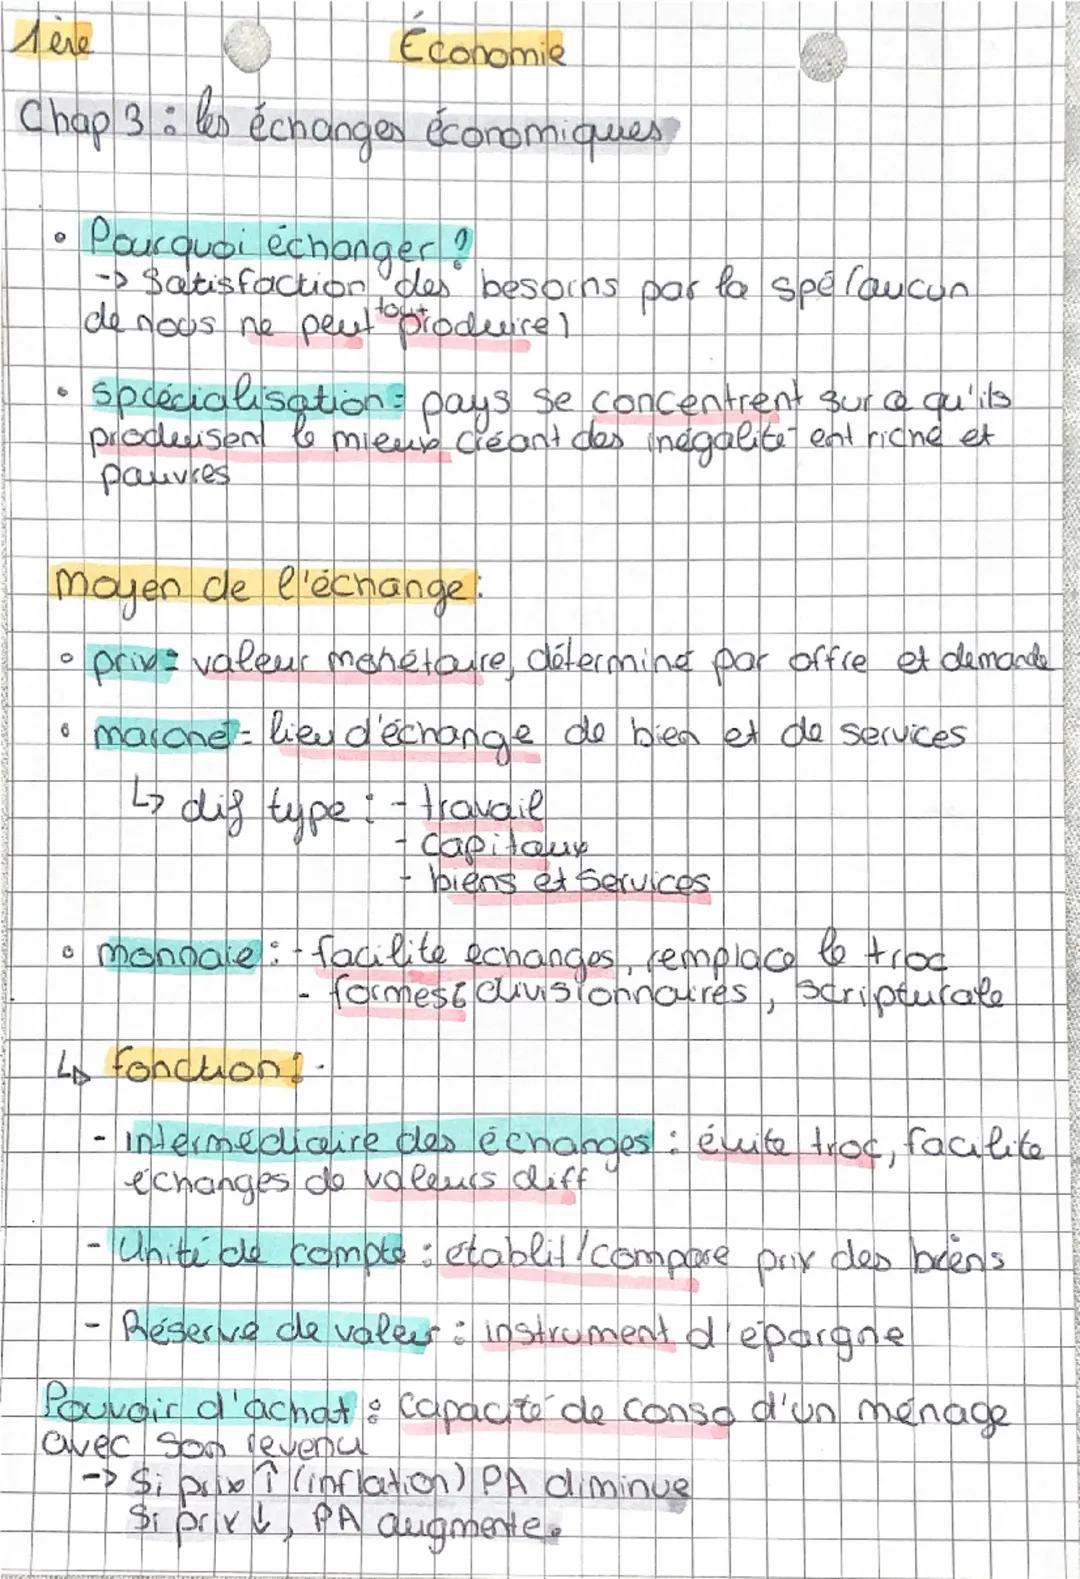 1ère
Économie
Chap 3 : les échanges économiques
• Pourquoi échanger ?
-> Satisfaction des besoins par la spé (aucun
de nous ne peut tout produire)
• spécialisation = pays se concentrent sur ce qu'ils
produisent le mieux créant des inégalité ent riche et
pauvres
moyen de l'échange :
• prix = valeur monétaire, déterminé par offre et demande
• marché = lieu d'échange de bien et de services
↳ dif type : - travail
- capitaux
- biens et services
• monnaie : - facilite échanges, remplace le troc
- formes : divisionnaires, scripturale
↳ fonction :
- intermédiaire des échanges : évite troc, facilite
échanges de valeurs diff
- Unité de compte : établit/compare prix des biens
- Réserve de valeur : instrument d'épargne
Pouvoir d'achat : capacité de conso d'un ménage
avec son revenu
-> Si prix ↑ (inflation) PA diminue
Si prix ↓, PA augmente.